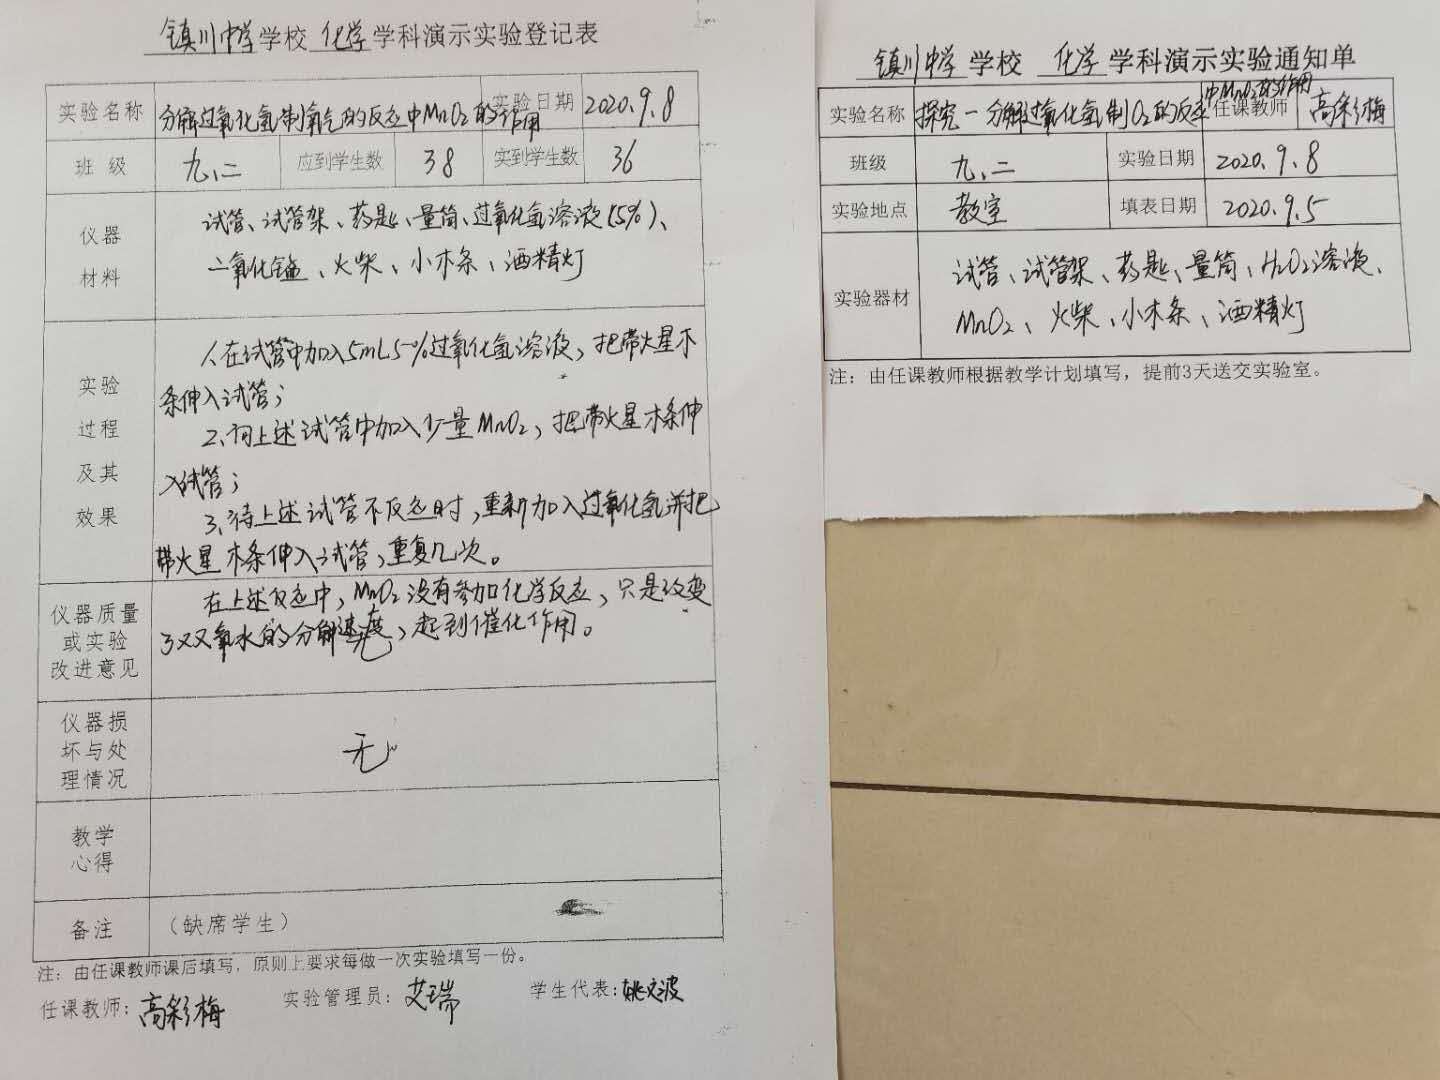 镇川中学学校 化学学科演示实验登记表
实验名称 分解过氧化氢制氧气的反应中MnO2的作用 实验日期 2020.9.8
班 级 九、二 应到学生数 38 实到学生数 36
仪器
材料
试管、试管架、药匙、量筒、过氧化氢溶液(5%)、
二氧化锰、火柴、小木条、酒精灯
实验
过程
及其
效果
1、在试管中加入5mL5%过氧化氢溶液，把带火星木
条伸入试管；
2、向上述试管中加入少量MnO2，把带火星木条伸
入试管；
3、待上述试管不反应时，重新加入过氧化氢并把
带火星木条伸入试管，重复几次。
仪器质量
或实验
改进意见
在上述反应中，MnO2没有参加化学反应，只是改变
了双氧水的分解速度，起到催化作用。
仪器损
坏与处
理情况
无
教学
心得
备注 （缺席学生）
注：由任课教师课后填写，原则上要求每做一次实验填写一份。
任课教师：高彩梅 实验管理员：艾瑞 学生代表：姚文波
镇川中学 学校 化学 学科演示实验通知单
实验名称 探究一分解过氧化氢制O2的反应中MnO2的作用 任课教师 高彩梅
班级 九、二 实验日期 2020.9.8
实验地点 教室 填表日期 2020.9.5
实验器材
试管、试管架、药匙、量筒、H2O2溶液、
MnO2、火柴、小木条、酒精灯
注：由任课教师根据教学计划填写，提前3天送交实验室。